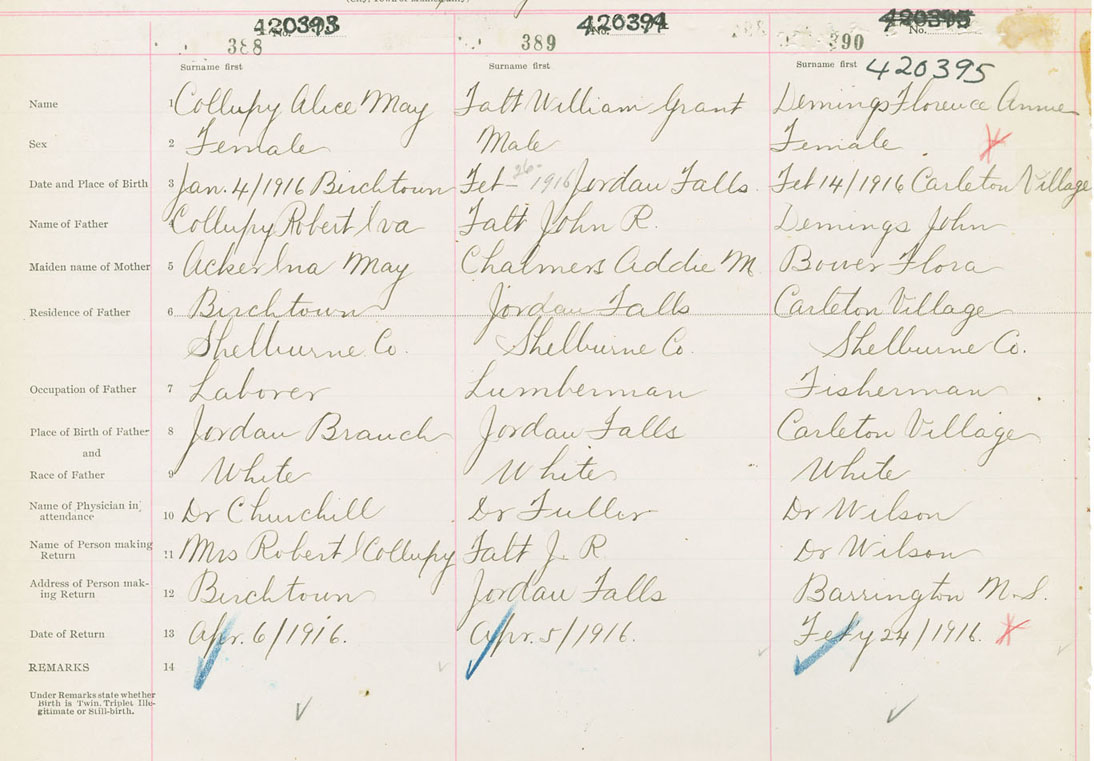 420393 420394 420395
No. No. No.
388 389 390
420395
Surname first Surname first Surname first
Name 1 Collupy Alice May Tatt William Grant Demings Florence Annie
Sex 2 Female Male Female
Date and Place of Birth 3 Jan. 4/1916 Birchtown Feb - 26 - 1916 Jordan Falls Feb 14/1916 Carleton Village
Name of Father 4 Collupy Robert Iva Tatt John R. Demings John
Maiden name of Mother 5 Acker Ina May Chalmers Addie M Bower Flora
Residence of Father 6 Birchtown Jordan Falls Carleton Village
Shelburne Co. Shelburne Co. Shelburne Co.
Occupation of Father 7 Laborer Lumberman Fisherman
Place of Birth of Father 8 Jordan Branch Jordan Falls Carleton Village
and
Race of Father 9 White White White
Name of Physician in attendance 10 Dr Churchill Dr Fuller Dr Wilson
Name of Person making Return 11 Mrs Robert I Collupy Tatt J. R. Dr Wilson
Address of Person mak-ing Return 12 Birchtown Jordan Falls Barrington N.S.
Date of Return 13 Apr. 6/1916. Apr. 5/1916. Feby 24/1916.
REMARKS 14
Under Remarks state whether
Birth is Twin, Triplet Ille-
gitimate or Still-birth.